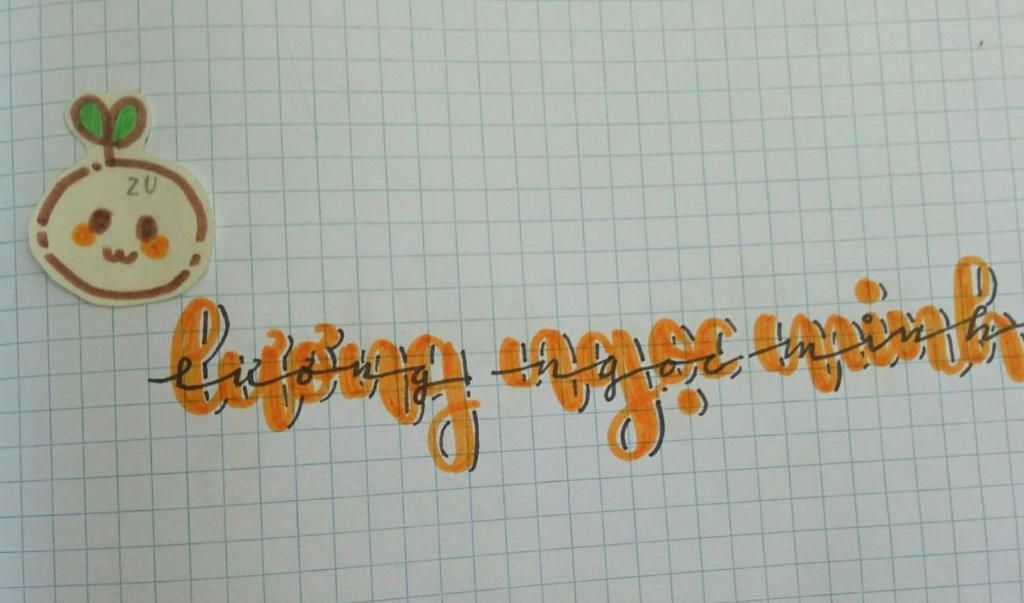 ZU
lương ngọc minh